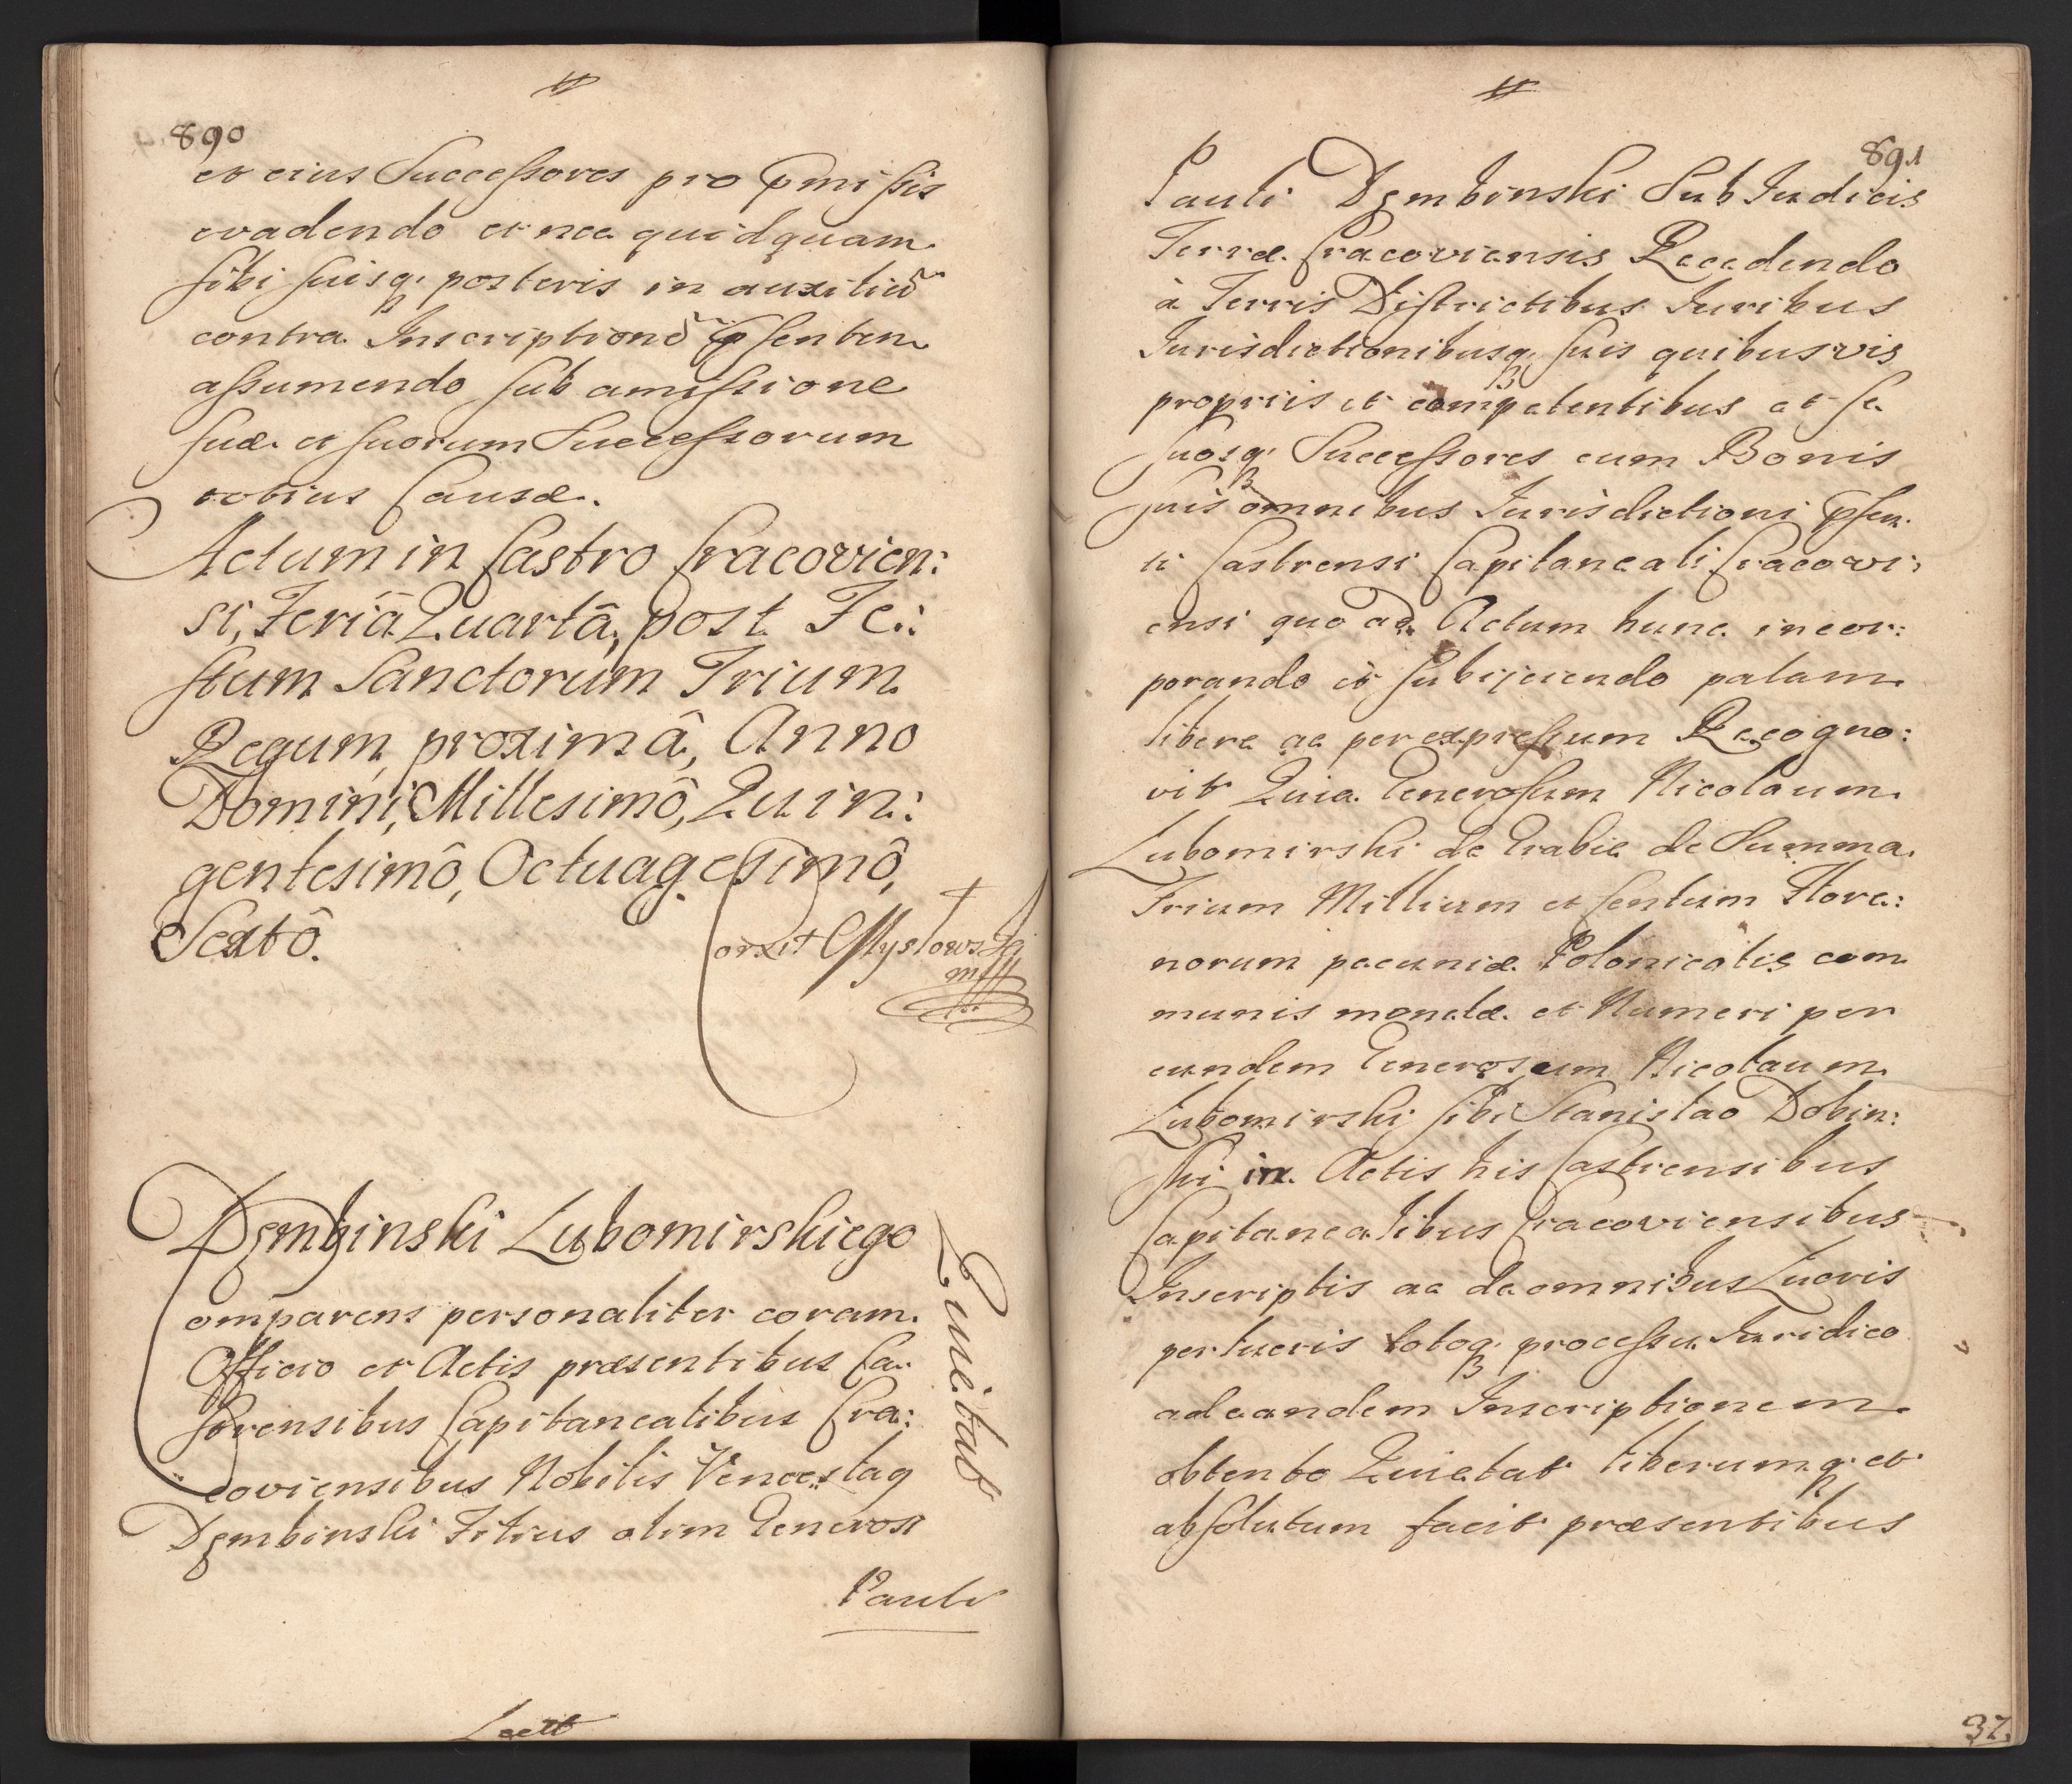 890
et eius Successores pro præmissis
evadendo et nec quidquam
sibi suisq; posteris in auxiliũ
contra Inscriptionẽ præsentem
assumendo sub amissione
suæ et suorum Successorum
totius Causæ.
Actum in Castro Cracovien:
si, Feriâ Quartâ, post Fe:
stum Sanctorum Trium
Regum, proximâ, Anno
Domini, Millesimô, Quin:
gentesimô, Octuagesimô,
Sextô.
Corxit Mysłowski
mpp
Dęmbinski Lubomirskiego
Quietat
Comparens personaliter coram
Officio et Actis præsentibus Ca
strensibus Capitanealibus Cra:
coviensibus Nobilis Venceslaq
Dęmbinski Filius olim Generosi
Pauli
Lectt
891
Pauli Dęmbinski SubIudicis
Terræ Cracoviensis Recedendo
à Terris Districtibus Iuribus
Iurisdictionibusq; suis quibusvis
propriis et competentibus et se
suosq; Successores cum Bonis
suis omnibus Iurisdictioni præsen
ti Castrensi Capitaneali Cracovi:
ensi quo ad Actum hunc incor:
porando et subijciendo palam
libere ac per expressum Recogno:
vit Quia Generosum Nicolaum
Lubomirski de Grabie de Summa
Trium Millium et Centum Flore:
norum pecuniæ Polonicalis com
munis monetæ et Numeri per
eundem Generosum Nicolaum
Lubomirski sibi Stanislao Dobin:
ski in Actis his Castrensibus
Capitanealibus Cracoviensibus
Inscriptis ac de omnibus Lucris
perlucris totoq; processu Iuridico
ad eandem Inscriptionem
obtento Quietat liberumq; et
absolutum facit præsentibus
37.